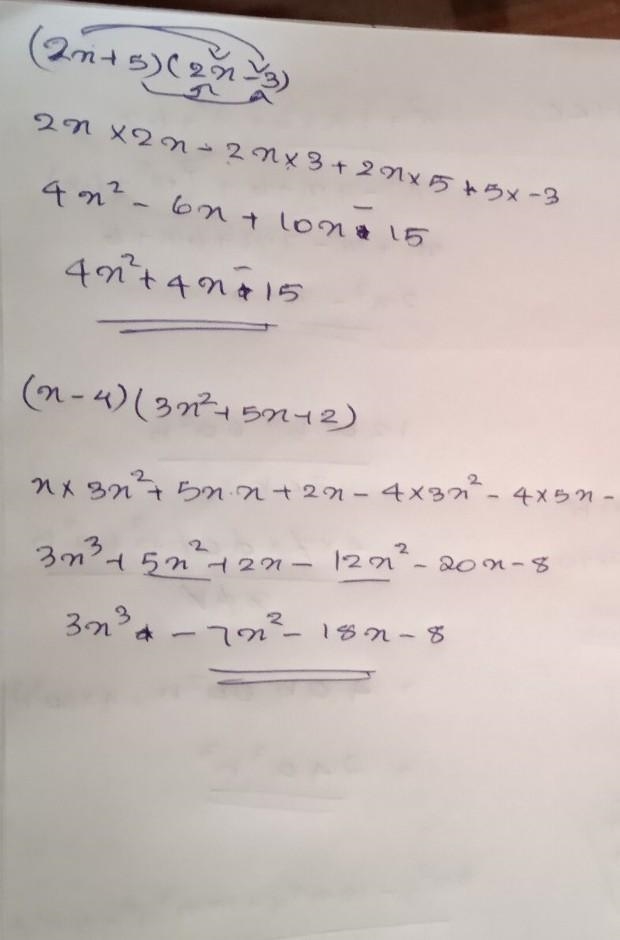 (2x+5)(2x-3)
2x × 2x - 2x × 3 + 2x × 5 + 5x - 3
4x² - 6x + 10x - 15
4x² + 4x - 15
(x-4)(3x²+5x+2)
x × 3x² + 5x·x + 2x - 4 × 3x² - 4 × 5x -
3x³ + 5x² + 2x - 12x² - 20x - 8
3x³ - 7x² - 18x - 8